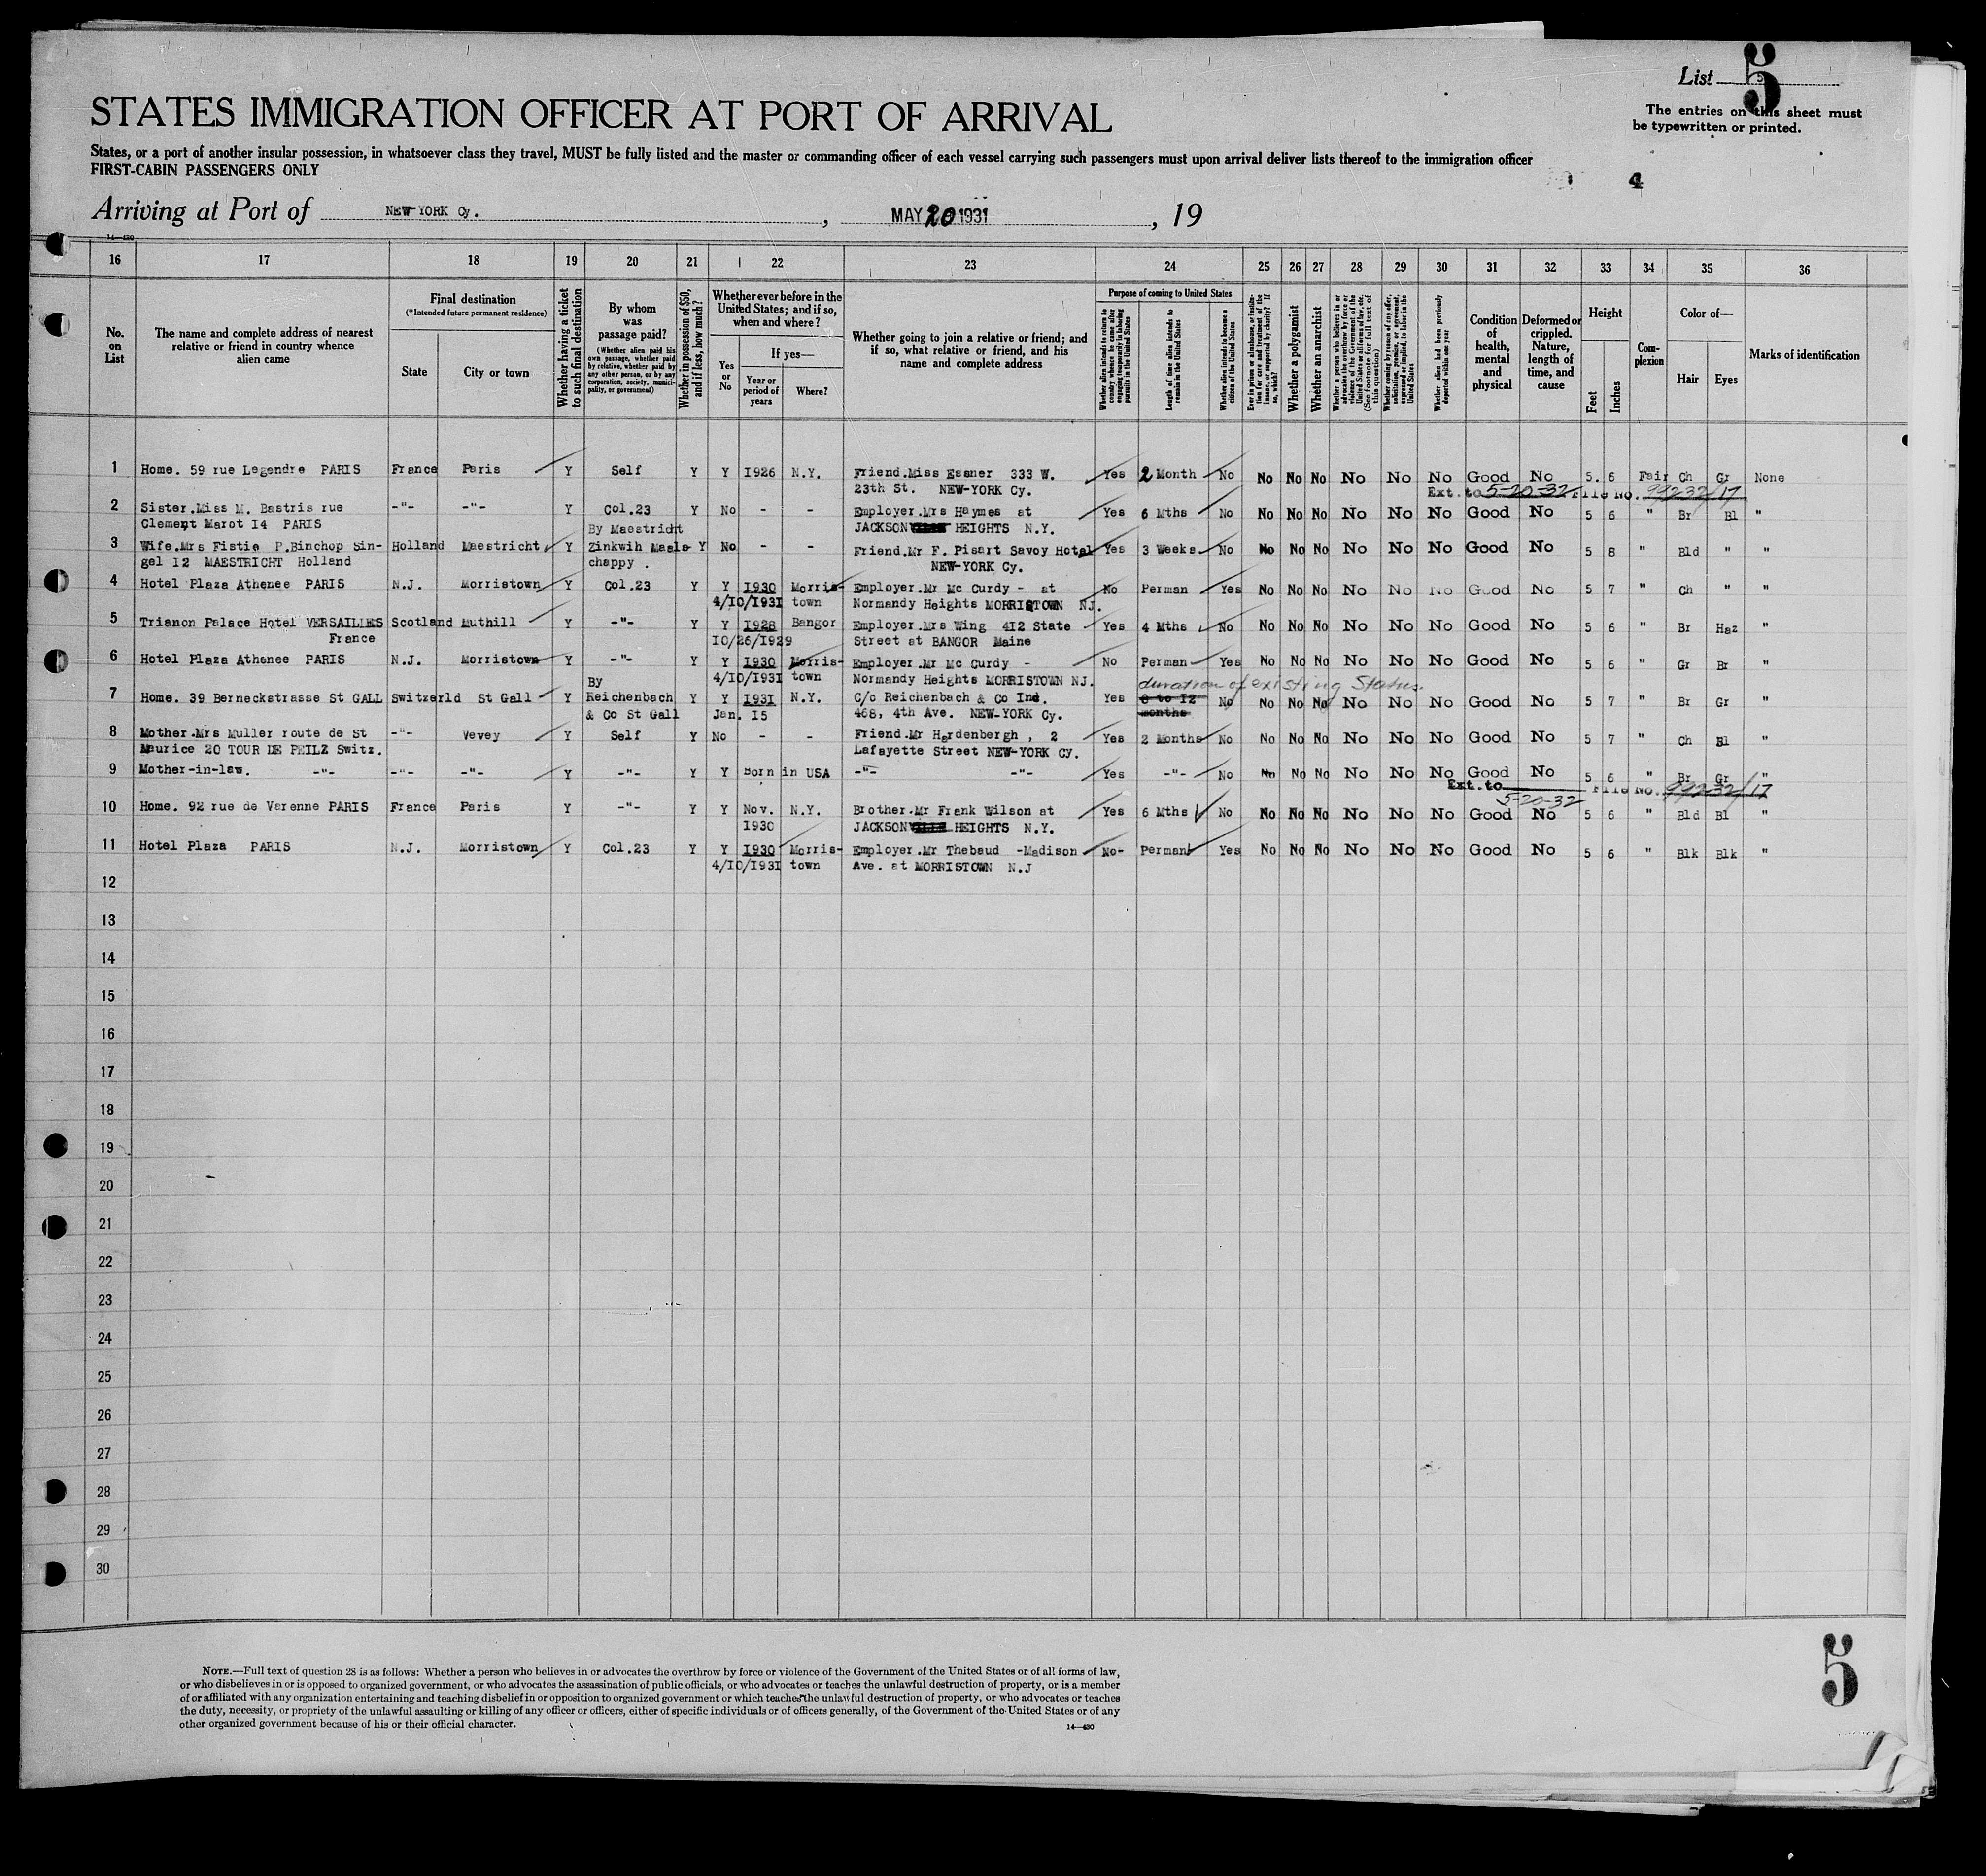 List 5
The entries on this sheet must
be typewritten or printed.
STATES IMMIGRATION OFFICER AT PORT OF ARRIVAL
States, or a port of another insular possession, in whatsoever class they travel, MUST be fully listed and the master or commanding officer of each vessel carrying such passengers must upon arrival deliver lists thereof to the immigration officer
FIRST-CABIN PASSENGERS ONLY
4
Arriving at Port of NEW-YORK Cy. , MAY 20 1931 , 19
14—430
16 17 18 19 20 21 22 23 24 25 26 27 28 29 30 31 32 33 34 35 36
No. on List
The name and complete address of nearest relative or friend in country whence alien came
Final destination
(*Intended future permanent residence)
State
City or town
Whether having a ticket to such final destination
By whom was passage paid?
(Whether alien paid his own passage, whether paid by relative, whether paid by any other person, or by any corporation, society, municipality, or government)
Whether in possession of $50, and if less, how much?
Whether ever before in the United States; and if so, when and where?
Yes or No
If yes—
Year or period of years
Where?
Whether going to join a relative or friend; and if so, what relative or friend, and his name and complete address
Purpose of coming to United States
Whether alien intends to return to country whence he came after engaging temporarily in laboring pursuits in the United States
Length of time alien intends to remain in the United States
Whether alien intends to become a citizen of the United States
Ever in prison or almshouse, or institution for care and treatment of the insane, or supported by charity? If so, which?
Whether a polygamist
Whether an anarchist
Whether a person who believes in or advocates the overthrow by force or violence of the Government of the United States or all forms of law, etc. (See footnote for full text of this question)
Whether coming by reason of any offer, solicitation, promise, or agreement, expressed or implied, to labor in the United States
Whether alien had been previously deported within one year
Condition of health, mental and physical
Deformed or crippled. Nature, length of time, and cause
Height
Feet
Inches
Complexion
Color of—
Hair
Eyes
Marks of identification
1 Home. 59 rue Legendre PARIS France Paris Y Self Y Y I926 N.Y. Friend.Miss Essner 333 W. Yes 2 Month No No No No No No No Good No 5. 6 Fair Ch Gr None
23th St. NEW-YORK Cy. Ext. to 5-20-32 File No. 99232/17
2 Sister.Miss M. Bastris rue -"- -"- Y Col.23 Y No - - Employer.Mrs Haymes at Yes 6 Mths No No No No No No No Good No 5 6 " Br Bl "
Clement Marot I4 PARIS By Maestricht JACKSON HEIGHTS N.Y.
3 Wife.Mrs Fistie P.Binchop Sin- Holland Maestricht Y Zinkwih Maals- Y No - - Friend.Mr F. Pisart Savoy Hotel Yes 3 Weeks No No No No No No No Good No 5 8 " Bld " "
gel I2 MAESTRICHT Holland chappy . NEW-YORK Cy.
4 Hotel Plaza Athenee PARIS N.J. Morristown Y Col.23 Y Y I930 Morris- Employer.Mr Mc Curdy - at No Perman Yes No No No No No No Good No 5 7 " Ch " "
4/IO/I93I town Normandy Heights MORRISTOWN NJ.
5 Trianon Palace Hotel VERSAILLES Scotland Muthill Y -"- Y Y I928 Bangor Employer.Mrs Wing 4I2 State Yes 4 Mths No No No No No No No Good No 5 6 " Br Haz "
France IO/26/I929 Street at BANGOR Maine
6 Hotel Plaza Athenee PARIS N.J. Morristown Y -"- Y Y I930 Morris- Employer.Mr Mc Curdy - No Perman Yes No No No No No No Good No 5 6 " Gr Br "
By 4/IO/I93I town Normandy Heights MORRISTOWN NJ. duration of existing Status.
7 Home. 39 Berneckstrasse St GALL Switzerld St Gall Y Reichenbach Y Y I93I N.Y. C/o Reichenbach & Co Inc. Yes 8 to I2 No No No No No No No Good No 5 7 " Br Gr "
& Co St Gall Jan. I5 468, 4th Ave. NEW-YORK Cy. months
8 Mother.Mrs Muller route de St -"- Vevey Y Self Y No - - Friend.Mr Hardenbergh , 2 Yes 2 Months No No No No No No No Good No 5 7 " Ch Bl "
Maurice 20 TOUR DE PEILZ Switz. Lafayette Street NEW-YORK CY.
9 Mother-in-law. -"- -"- -"- Y -"- Y Y Born in USA -"- -"- Yes -"- No No No No No No No Good No 5 6 " Br Gr "
Ext. to 5-20-32 File No. 99232/17
10 Home. 92 rue de Varenne PARIS France Paris Y -"- Y Y Nov. N.Y. Brother.Mr Frank Wilson at Yes 6 Mths No No No No No No No Good No 5 6 " Bld Bl "
I930 JACKSON HEIGHTS N.Y.
11 Hotel Plaza PARIS N.J. Morristown Y Col.23 Y Y I930 Morris- Employer.Mr Thebaud -Madison No- Perman Yes No No No No No No Good No 5 6 " Blk Blk "
4/IO/I93I town Ave. at MORRISTOWN N.J
12
13
14
15
16
17
18
19
20
21
22
23
24
25
26
27
28
29
30
NOTE.—Full text of question 28 is as follows: Whether a person who believes in or advocates the overthrow by force or violence of the Government of the United States or of all forms of law,
or who disbelieves in or is opposed to organized government, or who advocates the assassination of public officials, or who advocates or teaches the unlawful destruction of property, or is a member
of or affiliated with any organization entertaining and teaching disbelief in or opposition to organized government or which teaches the unlawful destruction of property, or who advocates or teaches
the duty, necessity, or propriety of the unlawful assaulting or killing of any officer or officers, either of specific individuals or of officers generally, of the Government of the United States or of any
other organized government because of his or their official character.
14—430
5